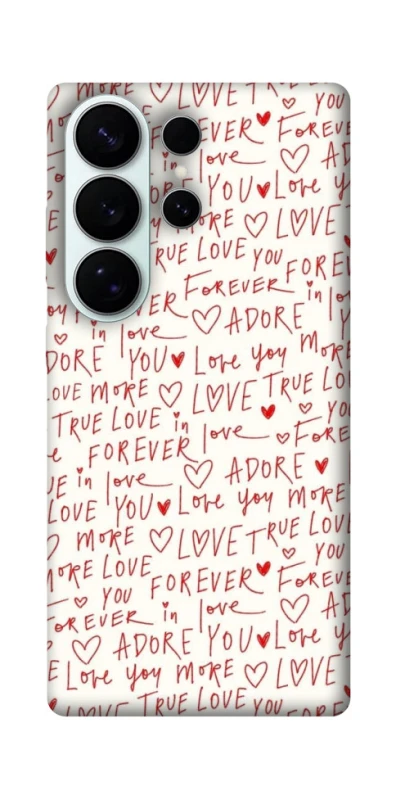 MORE LOVE TRUE
YOU
EVER FOREVER
in love AD
ORE YOU Love y
you MORE LOVE
TRUE LOVE YOU
FOREVER FOREV
OU EVER in lov
in love ADORE
DORE YOU Love you MOR
LOVE MORE LOVE TRUE LO
TRUE LOVE in YOU
FOREVER love FORE
E in love ADORE
LOVE YOU Love you MORE
MORE LOVE TRUE LOV
MORE LOVE YOU
YOU FOREVER FOREVE
FOREVER in love AD
ADORE YOU Love y
E Love you MORE LOVE
LOVE TRUE LOVE YOU FORE